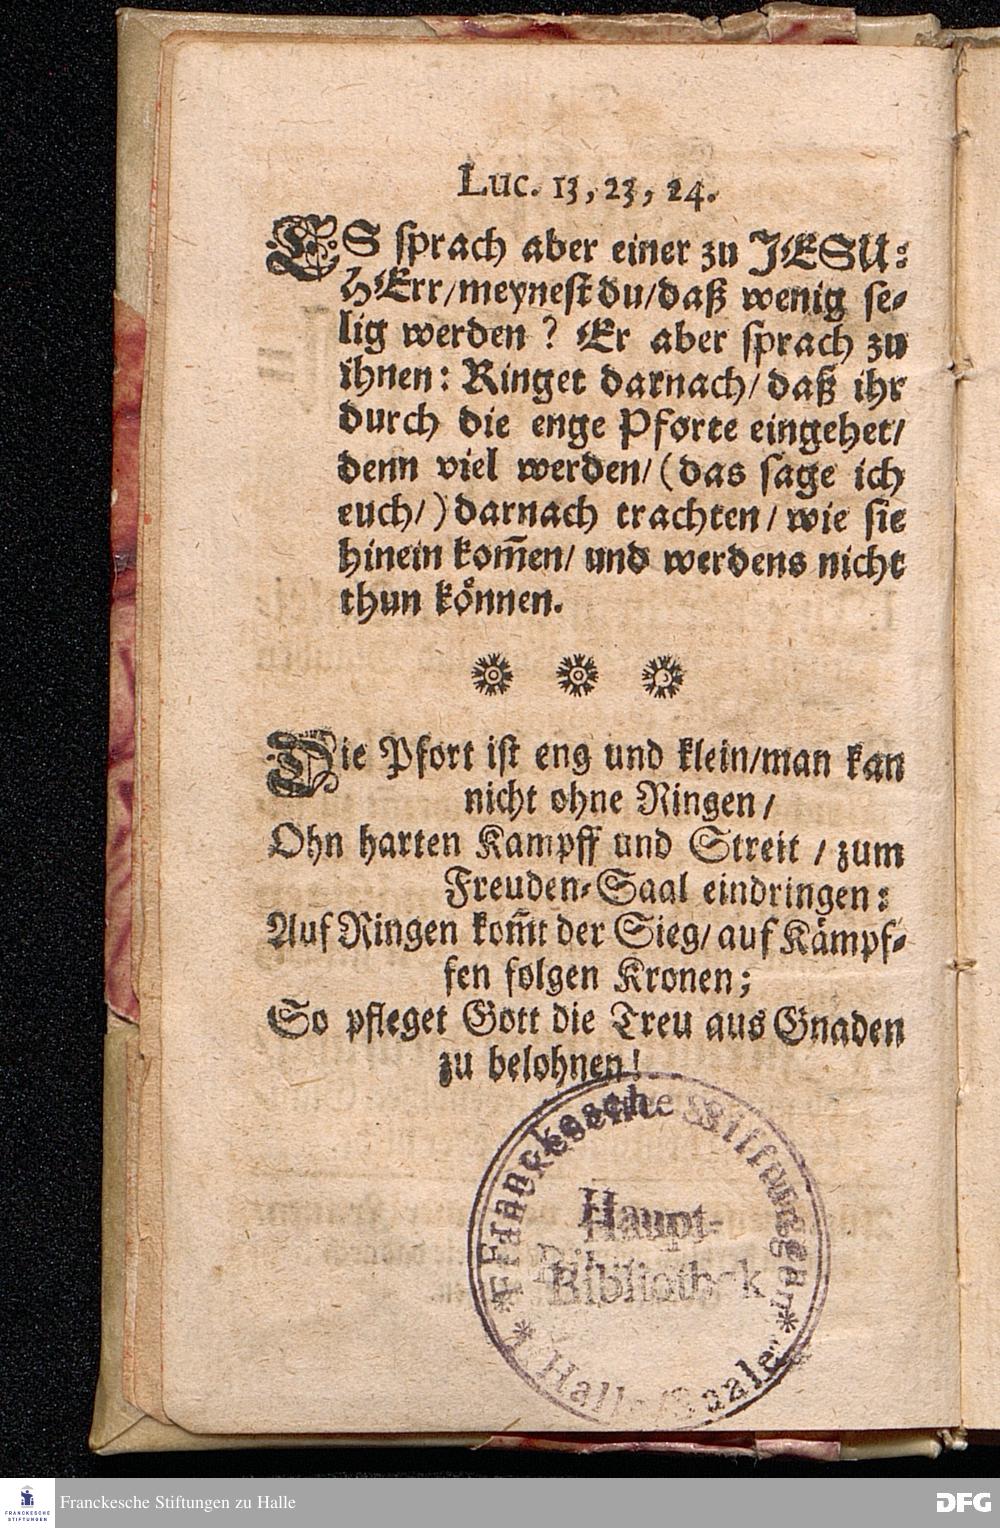 Luc. 13, 23, 24.
ES sprach aber einer zu JESU:
HErr/meynest du/daß wenig se-
lig werden? Er aber sprach zu
ihnen: Ringet darnach/ daß ihr
durch die enge Pforte eingehet/
denn viel werden/ (das sage ich
euch/) darnach trachten/ wie sie
hinein kom̃en/ und werdens nicht
thun können.
Die Pfort ist eng und klein/man kan
nicht ohne Ringen/
Ohn harten Kampff und Streit / zum
Freuden-Saal eindringen:
Auf Ringen kom̃t der Sieg/ auf Kämpf-
fen folgen Kronen;
So pfleget Gott die Treu aus Gnaden
zu belohnen!
Franckesche Stiftungen
Haupt-
Bibliothek
Halle/Saale
Franckesche Stiftungen zu Halle
FRANCKESCHE
STIFTUNGEN
DFG